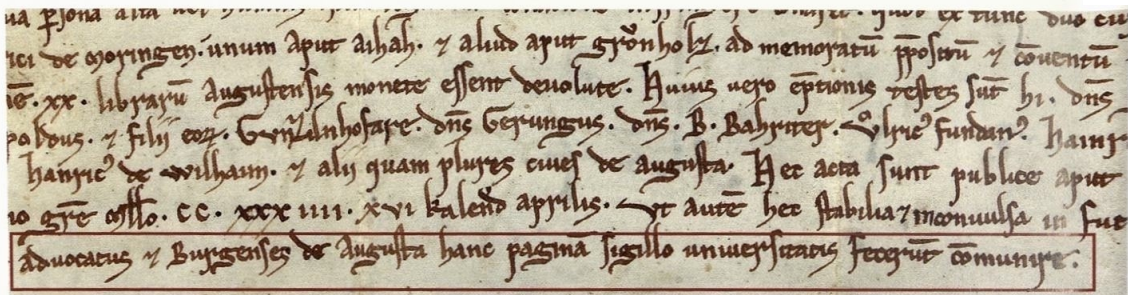 ici de moringen. unum aput aihah. ⁊ aliud aput gronholz. ad memoratū p̄positū ⁊ cōventū
xx. librarū Augustensis monete essent devolute. Huius vero ēptionis testes sūt hi. dn̄s
⁊ filii eoꝝ. dn̄s Gerungus. dn̄s. B. Bahriter. Ulricꝰ fundanꝰ.
hainricꝰ de wilhaim. ⁊ alii quam plures cives de augusta. Hec acta sunt publice aput
io grē CC. XXX IIII. XVI kalend aprilis. Ut autē hec stabilia ⁊ inconvulsa in
advocatus ⁊ Burgenses de Augusta hanc paginā sigillo universitatis fecerūt cōmunire.